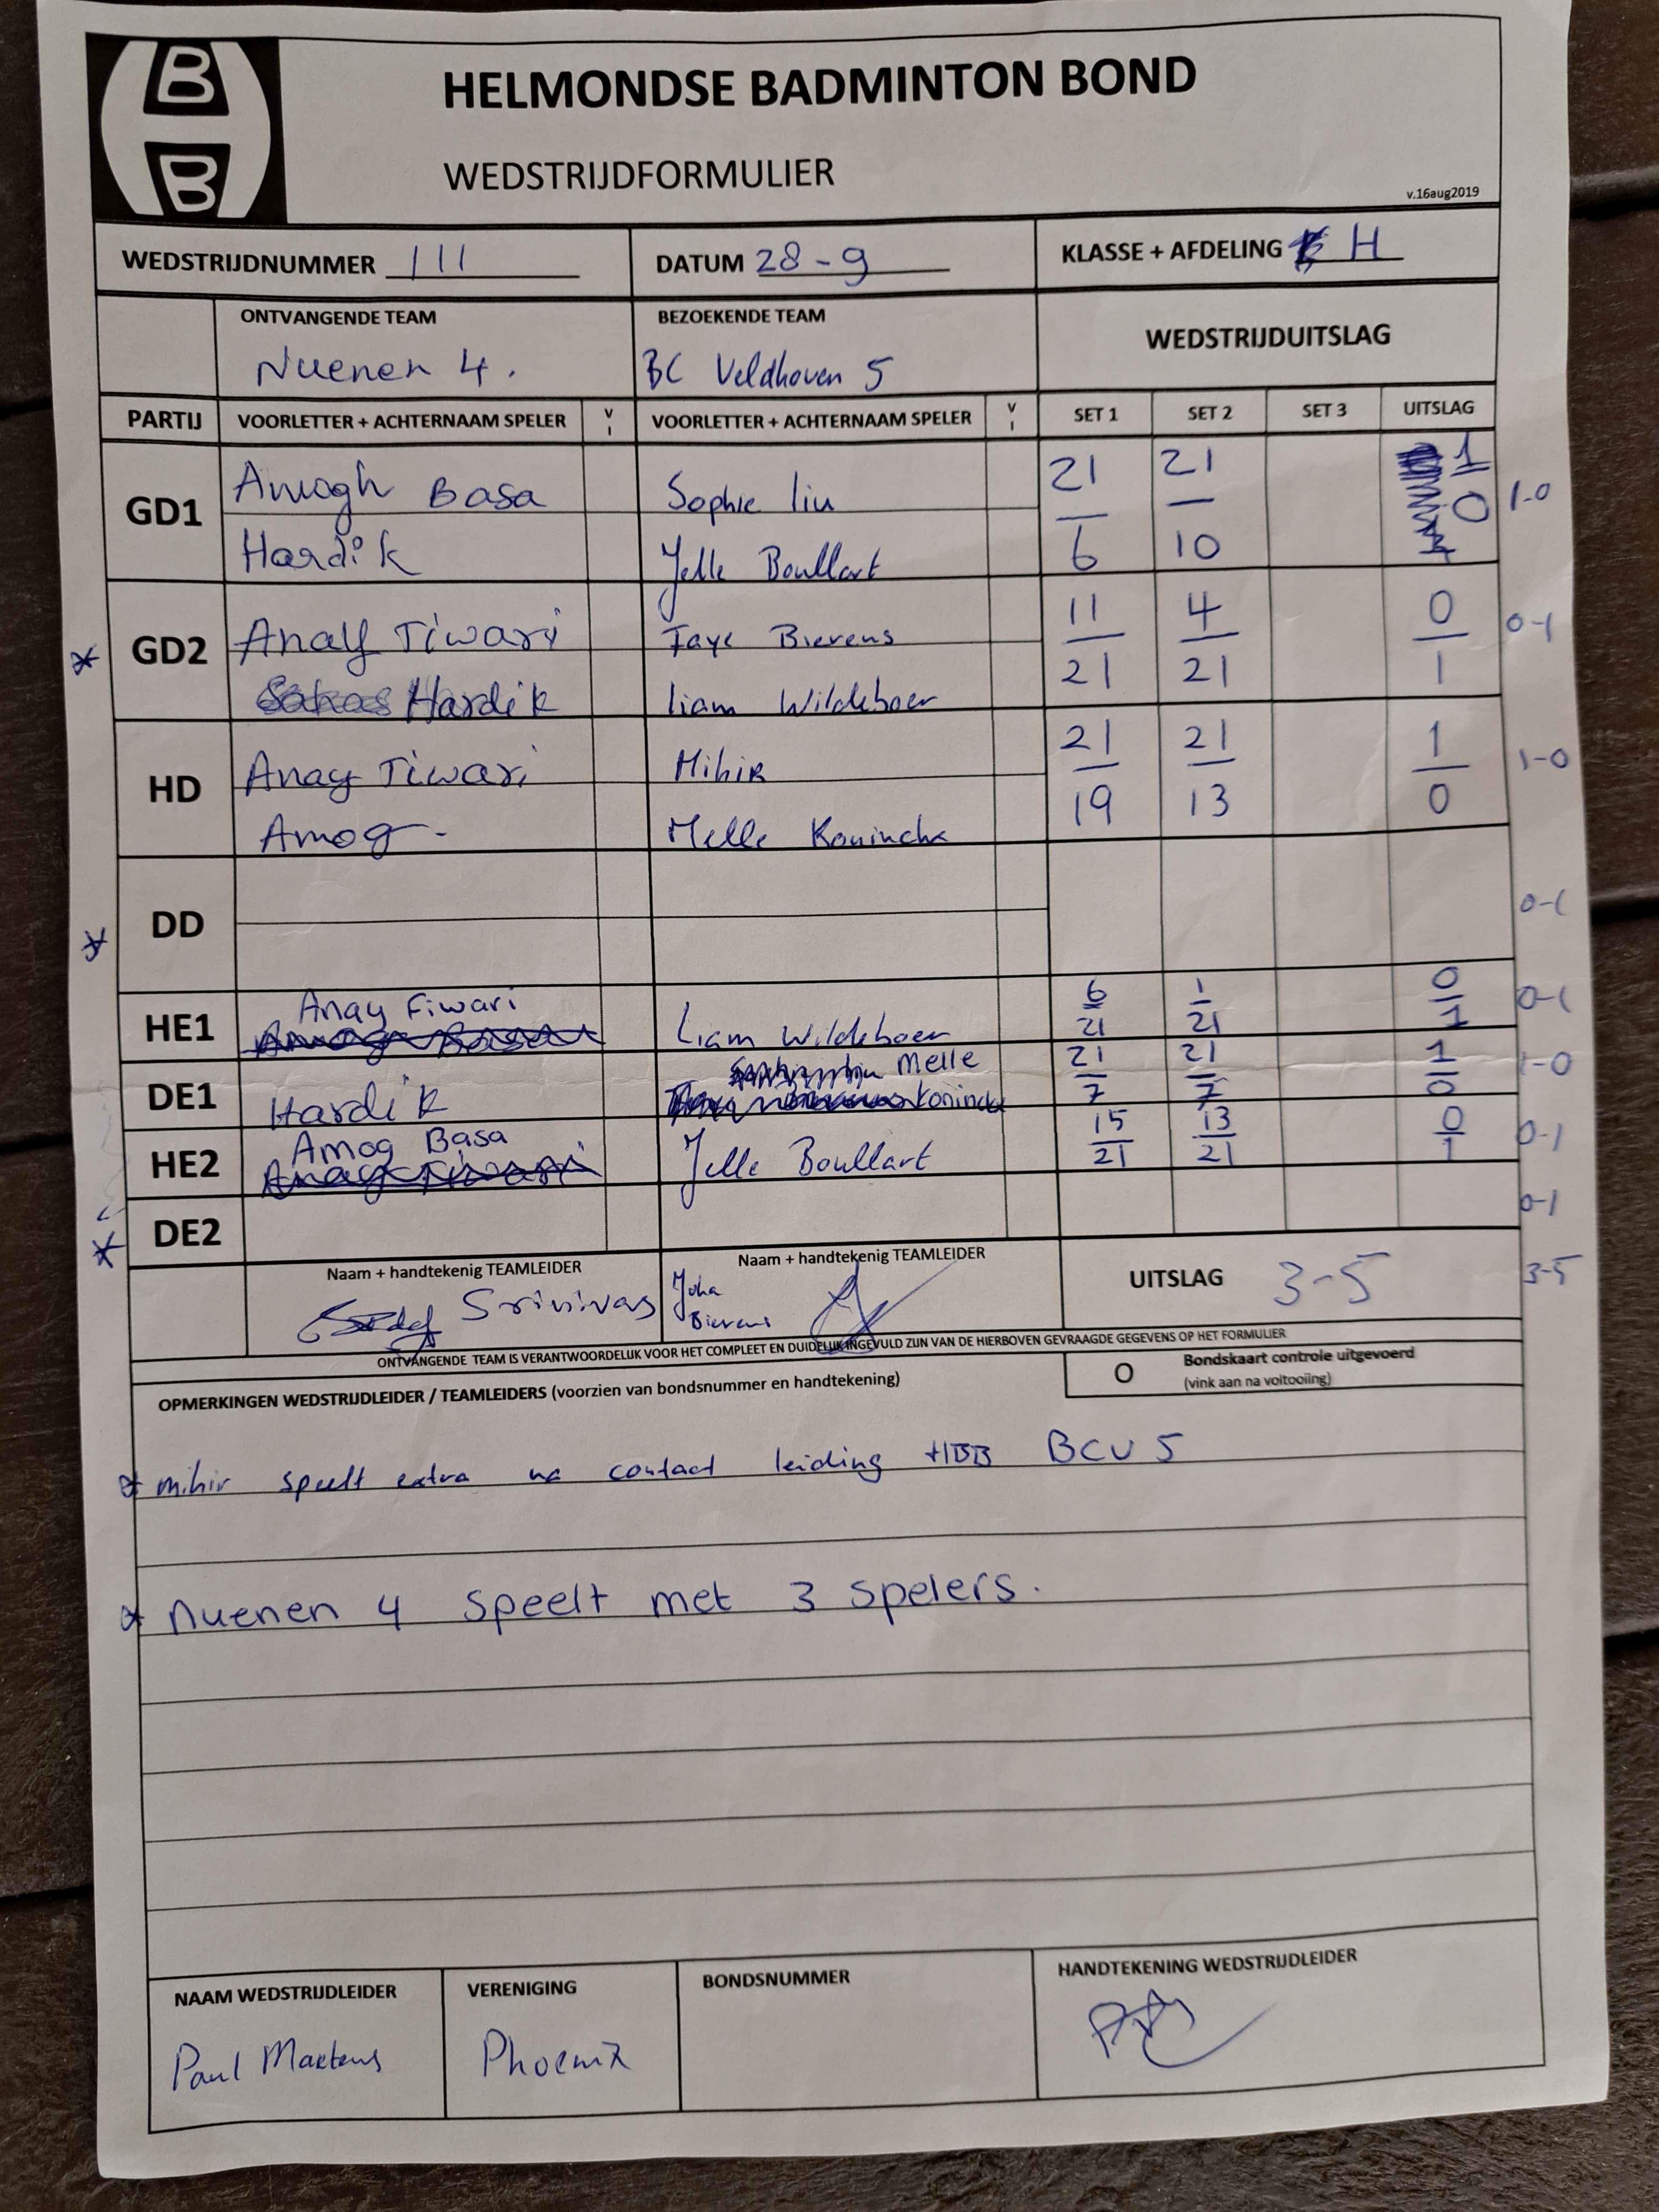 B
B
HELMONDSE BADMINTON BOND
WEDSTRIJDFORMULIER
v.16aug2019
WEDSTRIJDNUMMER 111 DATUM 28-9 KLASSE + AFDELING H
ONTVANGENDE TEAM BEZOEKENDE TEAM WEDSTRIJDUITSLAG
Nuenen 4. BC Veldhoven 5
PARTIJ VOORLETTER + ACHTERNAAM SPELER V I VOORLETTER + ACHTERNAAM SPELER V I SET 1 SET 2 SET 3 UITSLAG
GD1 Amogh Basa Sophie Liu 21 21 1 1-0
Hardik Jelle Boullart 6 10 0
* GD2 Tiwari Faye Bierens 11 4 0 0-1
Hardik Liam Wildeboer 21 21 1
HD Anay Tiwari Mihir 21 21 1 1-0
Amog- Melle Koninckx 19 13 0
* DD 0-1
HE1 Anay Fiwari Liam Wildeboer 6 1 0 0-1
21 21 1
DE1 Hardik Melle Koninckx 21 21 1 1-0
7 7 0
HE2 Amog Basa Jelle Boullart 15 13 0 0-1
21 21 1
* DE2 0-1
Naam + handtekenig TEAMLEIDER Naam + handtekenig TEAMLEIDER UITSLAG 3-5 3-5
Srinivas Joha Bierens
ONTVANGENDE TEAM IS VERANTWOORDELIJK VOOR HET COMPLEET EN DUIDELIJK INGEVULD ZIJN VAN DE HIERBOVEN GEVRAAGDE GEGEVENS OP HET FORMULIER
OPMERKINGEN WEDSTRIJDLEIDER / TEAMLEIDERS (voorzien van bondsnummer en handtekening) O Bondskaart controle uitgevoerd
(vink aan na voltooiing)
* mihir speelt extra na contact leiding HBB BCV 5
* Nuenen 4 speelt met 3 spelers.
NAAM WEDSTRIJDLEIDER VERENIGING BONDSNUMMER HANDTEKENING WEDSTRIJDLEIDER
Paul Maetens Phoenix